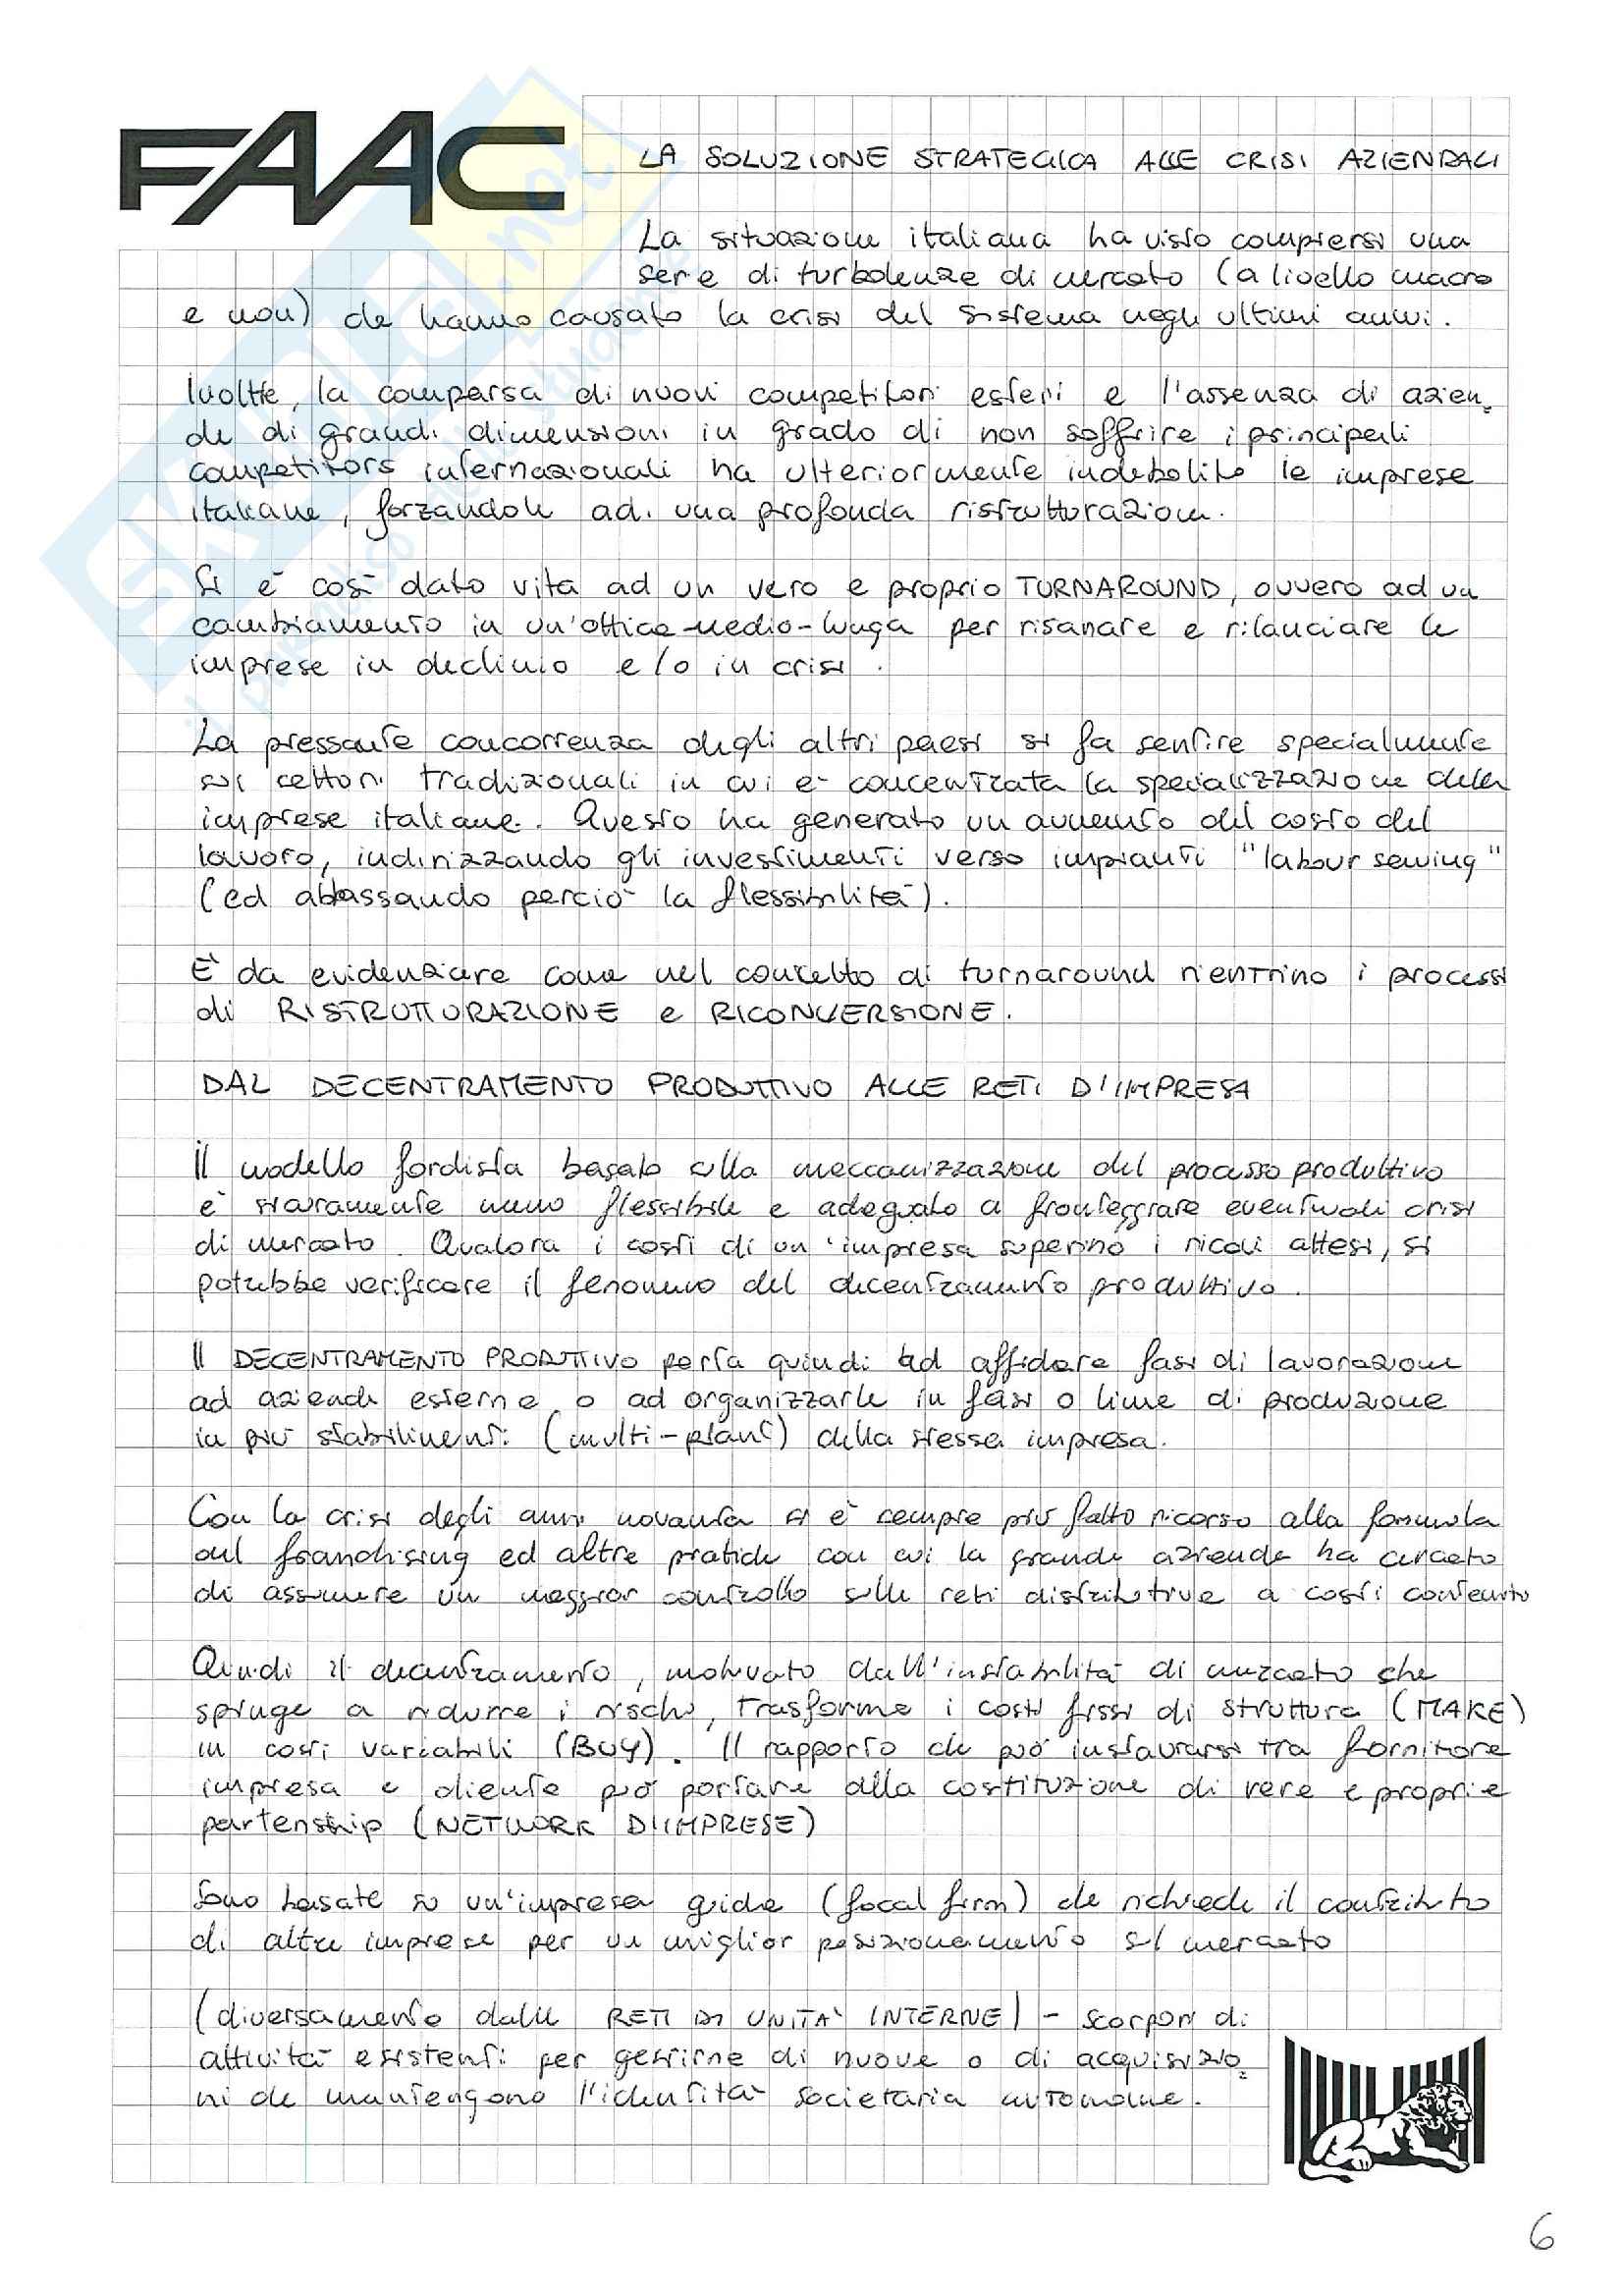 FAAC
LA SOLUZIONE STRATEGICA ALLE CRISI AZIENDALI
La situazione italiana ha visto compiersi una
serie di turbolenze di mercato (a livello macro
e non) che hanno causato la crisi del sistema negli ultimi anni.
Inoltre, la comparsa di nuovi competitori esteri e l'assenza di azien
de di grandi dimensioni in grado di non soffrire i principali
competitors internazionali ha ulteriormente indebolito le imprese
italiane, forzandole ad una profonda ristrutturazione.
Si è così dato vita ad un vero e proprio TURNAROUND, ovvero ad un
cambiamento in un'ottica medio-lunga per risanare e rilanciare le
imprese in declinio e/o in crisi.
La pressante concorrenza degli altri paesi si fa sentire specialmente
sui settori tradizionali in cui è concentrata la specializzazione delle
imprese italiane. Questo ha generato un aumento del costo del
lavoro, indirizzando gli investimenti verso impianti "labour sewing"
(ed abbassando perciò la flessibilità).
E' da evidenziare come nel concetto di turnaround rientrino i processi
di RISTRUTTURAZIONE e RICONVERSIONE.
DAL DECENTRAMENTO PRODUTTIVO ALLE RETI D'IMPRESA
Il modello fordista basato sulla meccanizzazione del processo produttivo
è sicuramente meno flessibile e adeguato a fronteggiare eventuali crisi
di mercato. Qualora i costi di un'impresa superino i ricavi attesi, si
potrebbe verificare il fenomeno del decentramento produttivo.
Il DECENTRAMENTO PRODUTTIVO porta quindi ad affidare fasi di lavorazione
ad aziende esterne o ad organizzarle in fasi o linee di produzione
in più stabilimenti (multi-plant) della stessa impresa.
Con la crisi degli anni novanta si è sempre più fatto ricorso alla formula
del franchising ed altre pratiche con cui la grande azienda ha cercato
di assumere un maggior controllo sulle reti distributive a costi contenuti
Quindi il decentramento, motivato dall'instabilità di mercato che
spinge a ridurre i rischi, trasforma i costi fissi di struttura (MAKE)
in costi variabili (BUY). Il rapporto che può instaurarsi tra fornitore
impresa e cliente può portare alla costituzione di vere e proprie
partenship (NETWORK D'IMPRESE)
Sono basate su un'impresa guida (focal firm) che richiede il contributo
di altre imprese per un miglior posizionamento sul mercato
(diversamente dalle RETI DI UNITA' INTERNE) - scorpori di
attività esistenti per gestirne di nuove o di acquisizio
ni che mantengono l'identità societaria autonoma.
6